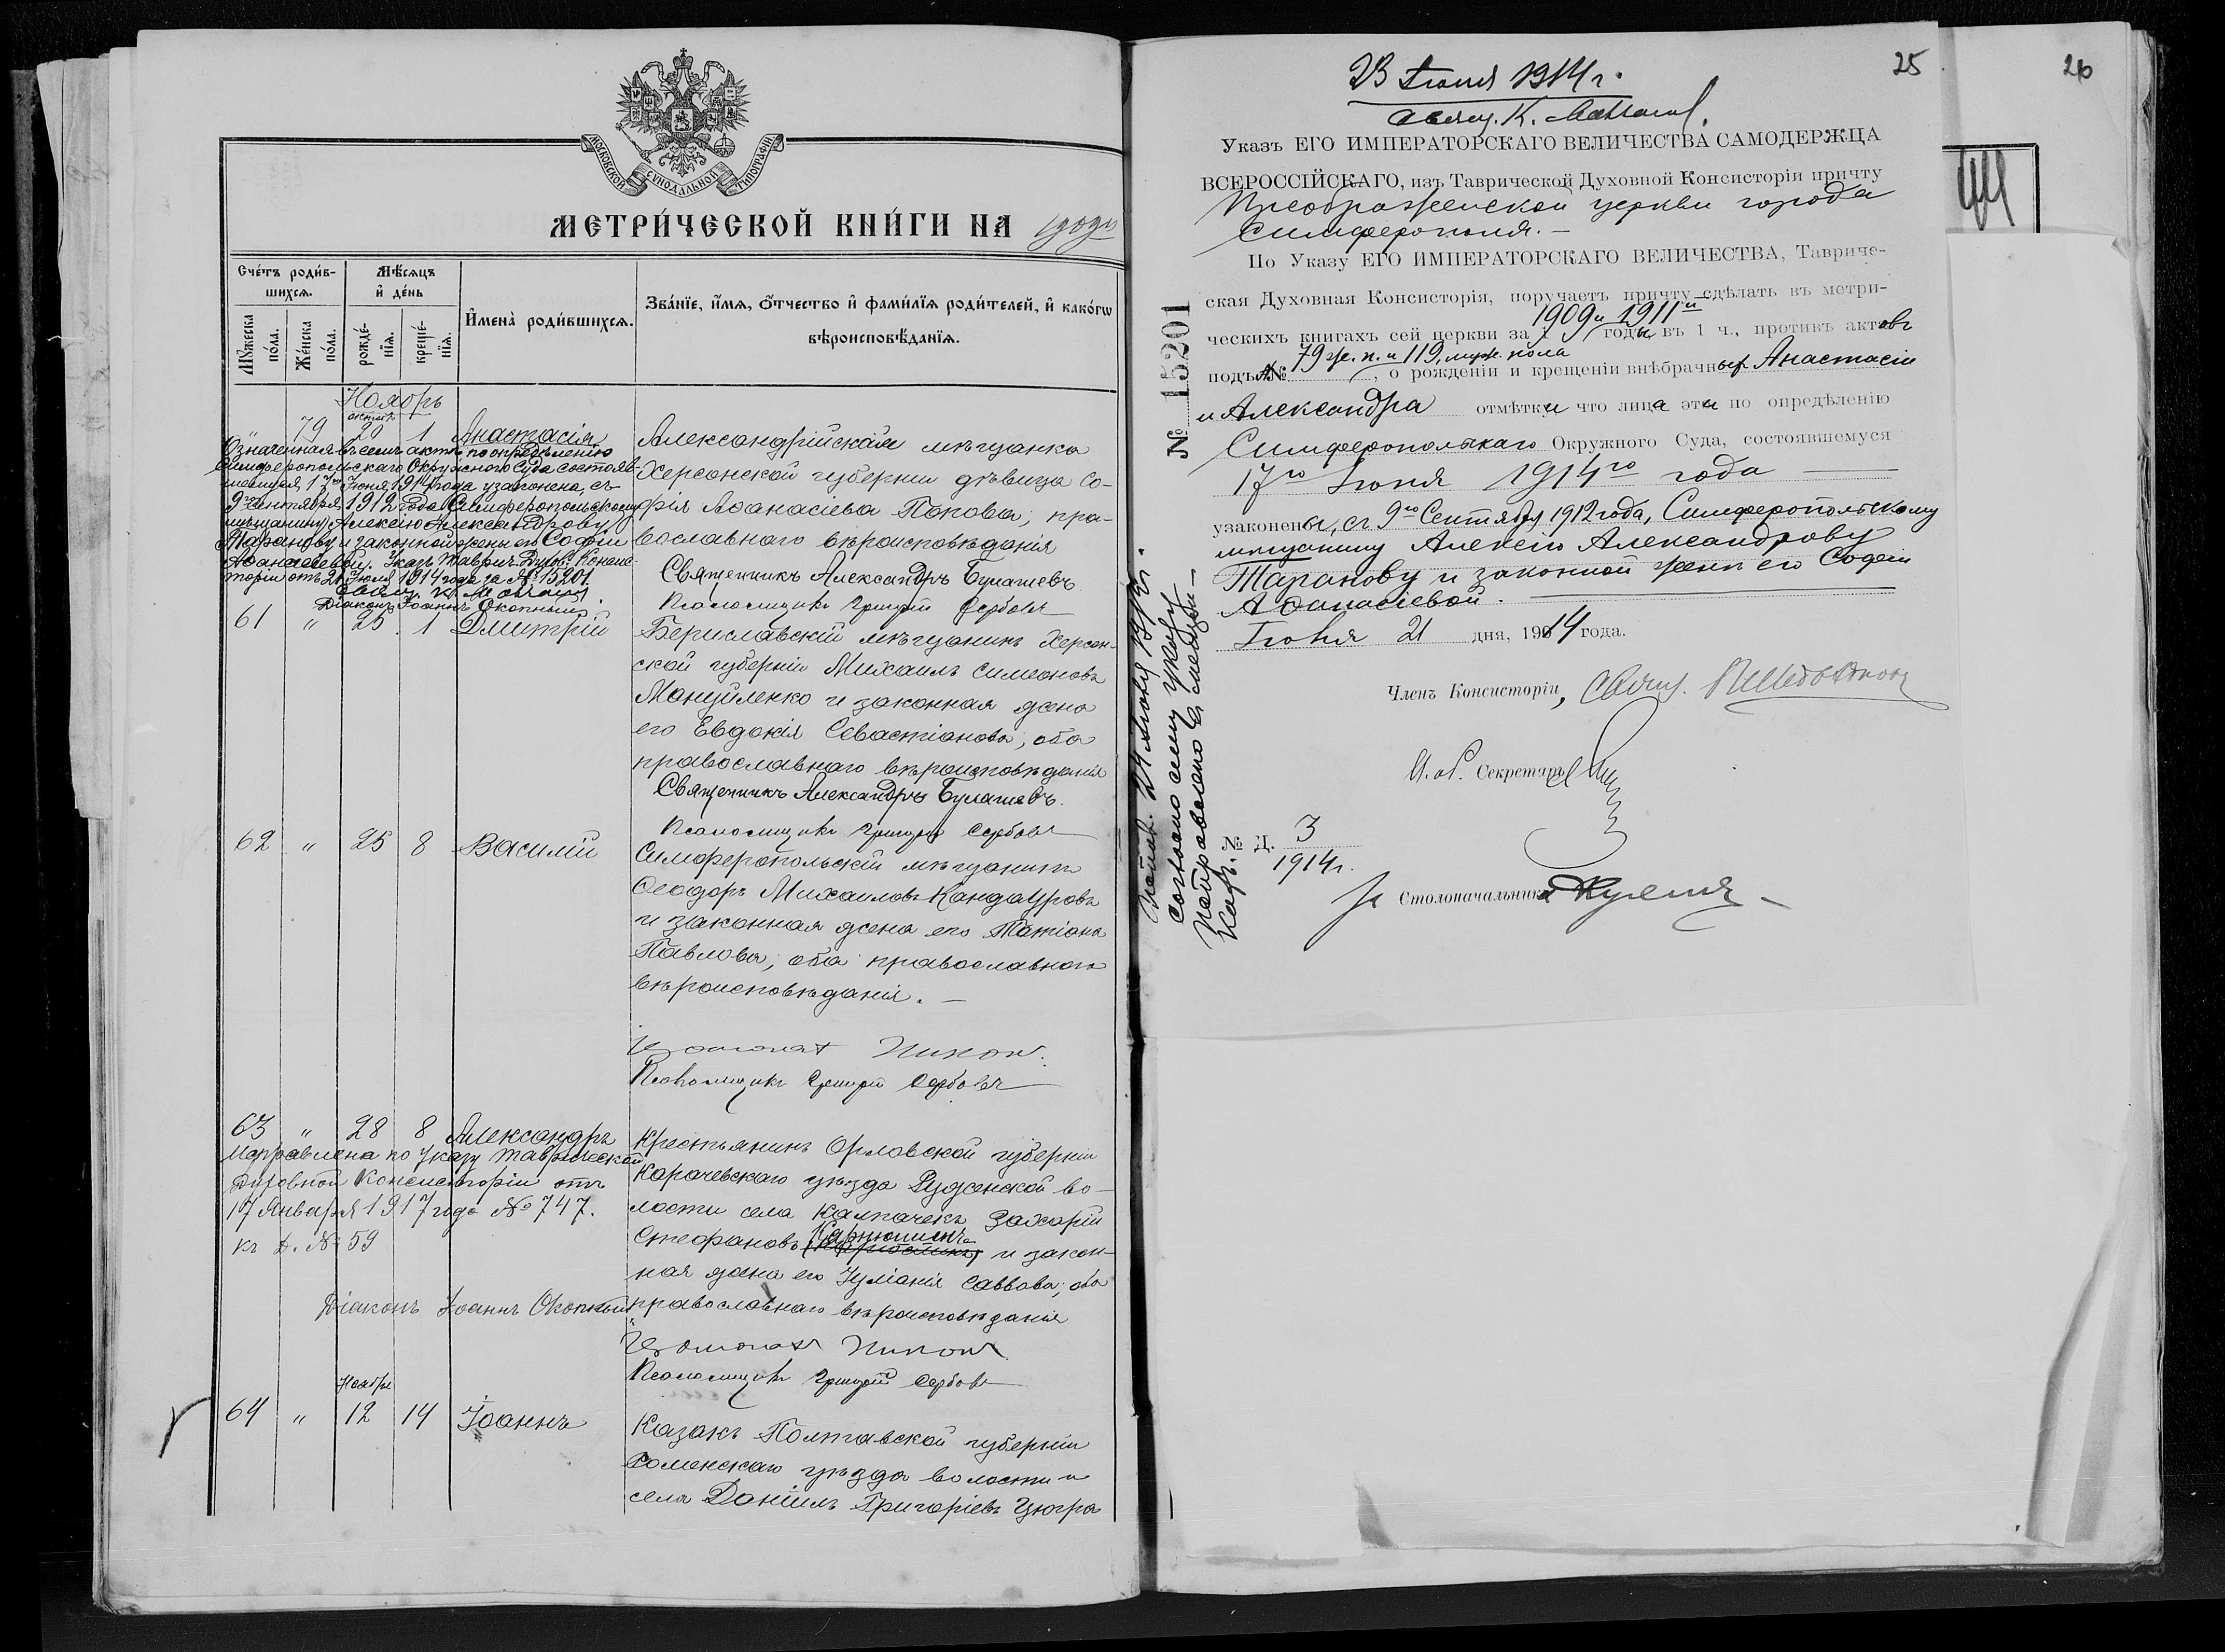 МОСКОВСКОЙ СУНОДАЛЬНОЙ ТИПОГРАФІИ
МЕТРИ́ЧЕСКОЙ КНИ́ГИ НА 1909 г
Сче́тъ роди́в-
шихся.
Мѣ́сяцъ
и҆ де́нь
И҆мена̀ роди́вшихся.
Зва́нїе, и҆́мя, ѻ҆́тчество и҆ фами́лїя роди́телей, и҆ како́гѡ
вѣроисповѣ́данїя.
Мꙋ́жеска
по́ла.
Же́нска
по́ла.
рожде́-
нїя.
креще́-
нїя.
Ноябрь
октяб.
79 29 1 Анастасія
Александрійская мѣщанка
Херсонской губерніи дѣвица Со-
фія Аѳанасіева Попова, пра-
вославнаго вѣроисповѣданія
Священникъ Александръ Булашевъ
Псаломщикъ Григорій Сербовъ
Означенная въ семъ актѣ по опредѣленію
Симферопольскаго Окружного Суда состояв-
шемуся 17го Іюня 1914 года узаконена, съ
9го сентября 1912 года Симферопольскому
мѣщанину Алексѣю Александрову
Таранову и законной жены его Софіи
Аѳанасіевой. Указъ Тавричь. Духов. Консис-
торіи отъ 21 Іюня 1914 года за № 15201.
Діаконъ Іоаннъ Окопный
61 " 25 1 Дмитрій
Бериславскій мѣщанинъ Херсон-
ской губерніи Михаилъ Симеоновъ
Мануйленко и законная жена
его Евдокія Севастіанова, оба
православнаго вѣроисповѣданія
Священникъ Александръ Булашевъ.
Псаломщикъ Григорій Сербовъ
62 " 25 8 Василій
Симферопольскій мѣщанинъ
Ѳеодоръ Михаиловъ Кандауровъ
и законная жена его Татіана
Павлова, оба православнаго
вѣроисповѣданія. –
Іеромонахъ Никонъ.
Псаломщикъ Григорій Сербовъ
63 " 28 8 Александръ
Крестьянинъ Орловской губерніи
Карачевскаго уѣзда Руженской во-
лости села Калпачекъ Захарій
Стефановъ Карнюшинъ и закон-
ная жена его Іуліанія Саввова, оба
православнаго вѣроисповѣданія
Іеромонахъ Никонъ
Псаломщикъ Григорій Сербовъ
Исправлена по указу Таврической
Духовной Консисторіи отъ
17 Января 1917 года № 747.
къ д. № 59
Діаконъ Іоаннъ Окопный
Ноября
64 " 12 14 Іоаннъ
Казакъ Полтавской губерніи
Роменскаго уѣзда волости и
села Даніилъ Григоріевъ Цюгра
25
26
44
23 Іюня 1914 г.
Свящ. К.
Указъ ЕГО ИМПЕРАТОРСКАГО ВЕЛИЧЕСТВА САМОДЕРЖЦА
ВСЕРОССІЙСКАГО, изъ Таврической Духовной Консисторіи причту
Преображенской церкви города
Симферополя. –
По Указу ЕГО ИМПЕРАТОРСКАГО ВЕЛИЧЕСТВА, Тавриче-
ская Духовная Консисторія, поручаетъ причту сдѣлать въ метри-
ческихъ книгахъ сей церкви за 1909 и 1911й годы въ 1 ч., противъ актовъ
подъ №№ 79 ж. п. и 119, муж. пола, о рожденіи и крещеніи внѣбрачныхъ Анастасіи
и Александра отмѣтки что лица эти по опредѣленію
Симферопольскаго Окружного Суда, состоявшемуся
17го Іюня 1914го года
узаконены, съ 9го Сентября 1912 года, Симферопольскому
мѣщанину Алексѣю Александрову
Таранову и законной женѣ его Софіи
Аѳанасіевой.
Іюня 21 дня, 1914 года.
Членъ Консисторіи, Свящ.
И. об. Секретаря
№ Д. 3
1914 г.
За Столоначальника
№ 15201
24 Іюня 1914 г.
Согласно сему указу
исправлено